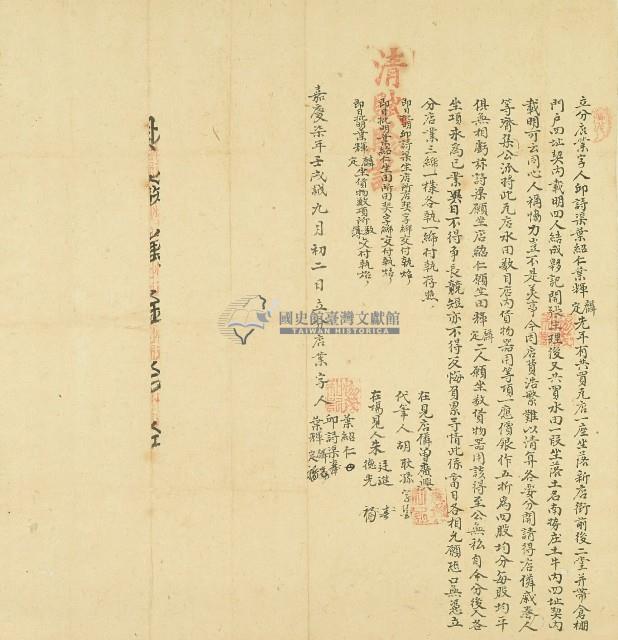 立分店業字人邱詩渠葉紹仁葉輝麟定先年有共買瓦店一座坐落新店街前後二堂并帶倉棚
門戶四址契內載明四人結成夥記開張生理後又共買水田一段坐落土名南勢庄土牛內四址契內
載明可云同心人稱協力豈不是美事今因店費浩繁難以清算各要分開請得店隣戚眷人
等齊集公派將此瓦店水田數目店內貨物器用等項一應價銀作五折為四股均分每股均平
俱無相虧詩渠願坐店紹仁願坐田輝麟定二人願坐數貨物器用該得至公無私自今分後人各
坐項永為己業異日不得爭長競短亦不得反悔負累等情此係當日各相允願恐口無憑立
分店業三紙一樣各執一紙付執存照
即日批明邱詩渠坐店所店契字繳交付執炤
即日批明葉紹仁坐田所田契字繳交付執炤
即日批明葉輝麟定坐貨物數項所數簿交付執炤
在見店隣曾廣興
代筆人胡耿
在場見人朱廷進 德光
葉紹仁
邱詩渠
葉輝麟定
嘉慶柒年壬戌歲九月初二日立分店業字人
國史館臺灣文獻館
TAIWAN HISTORICA